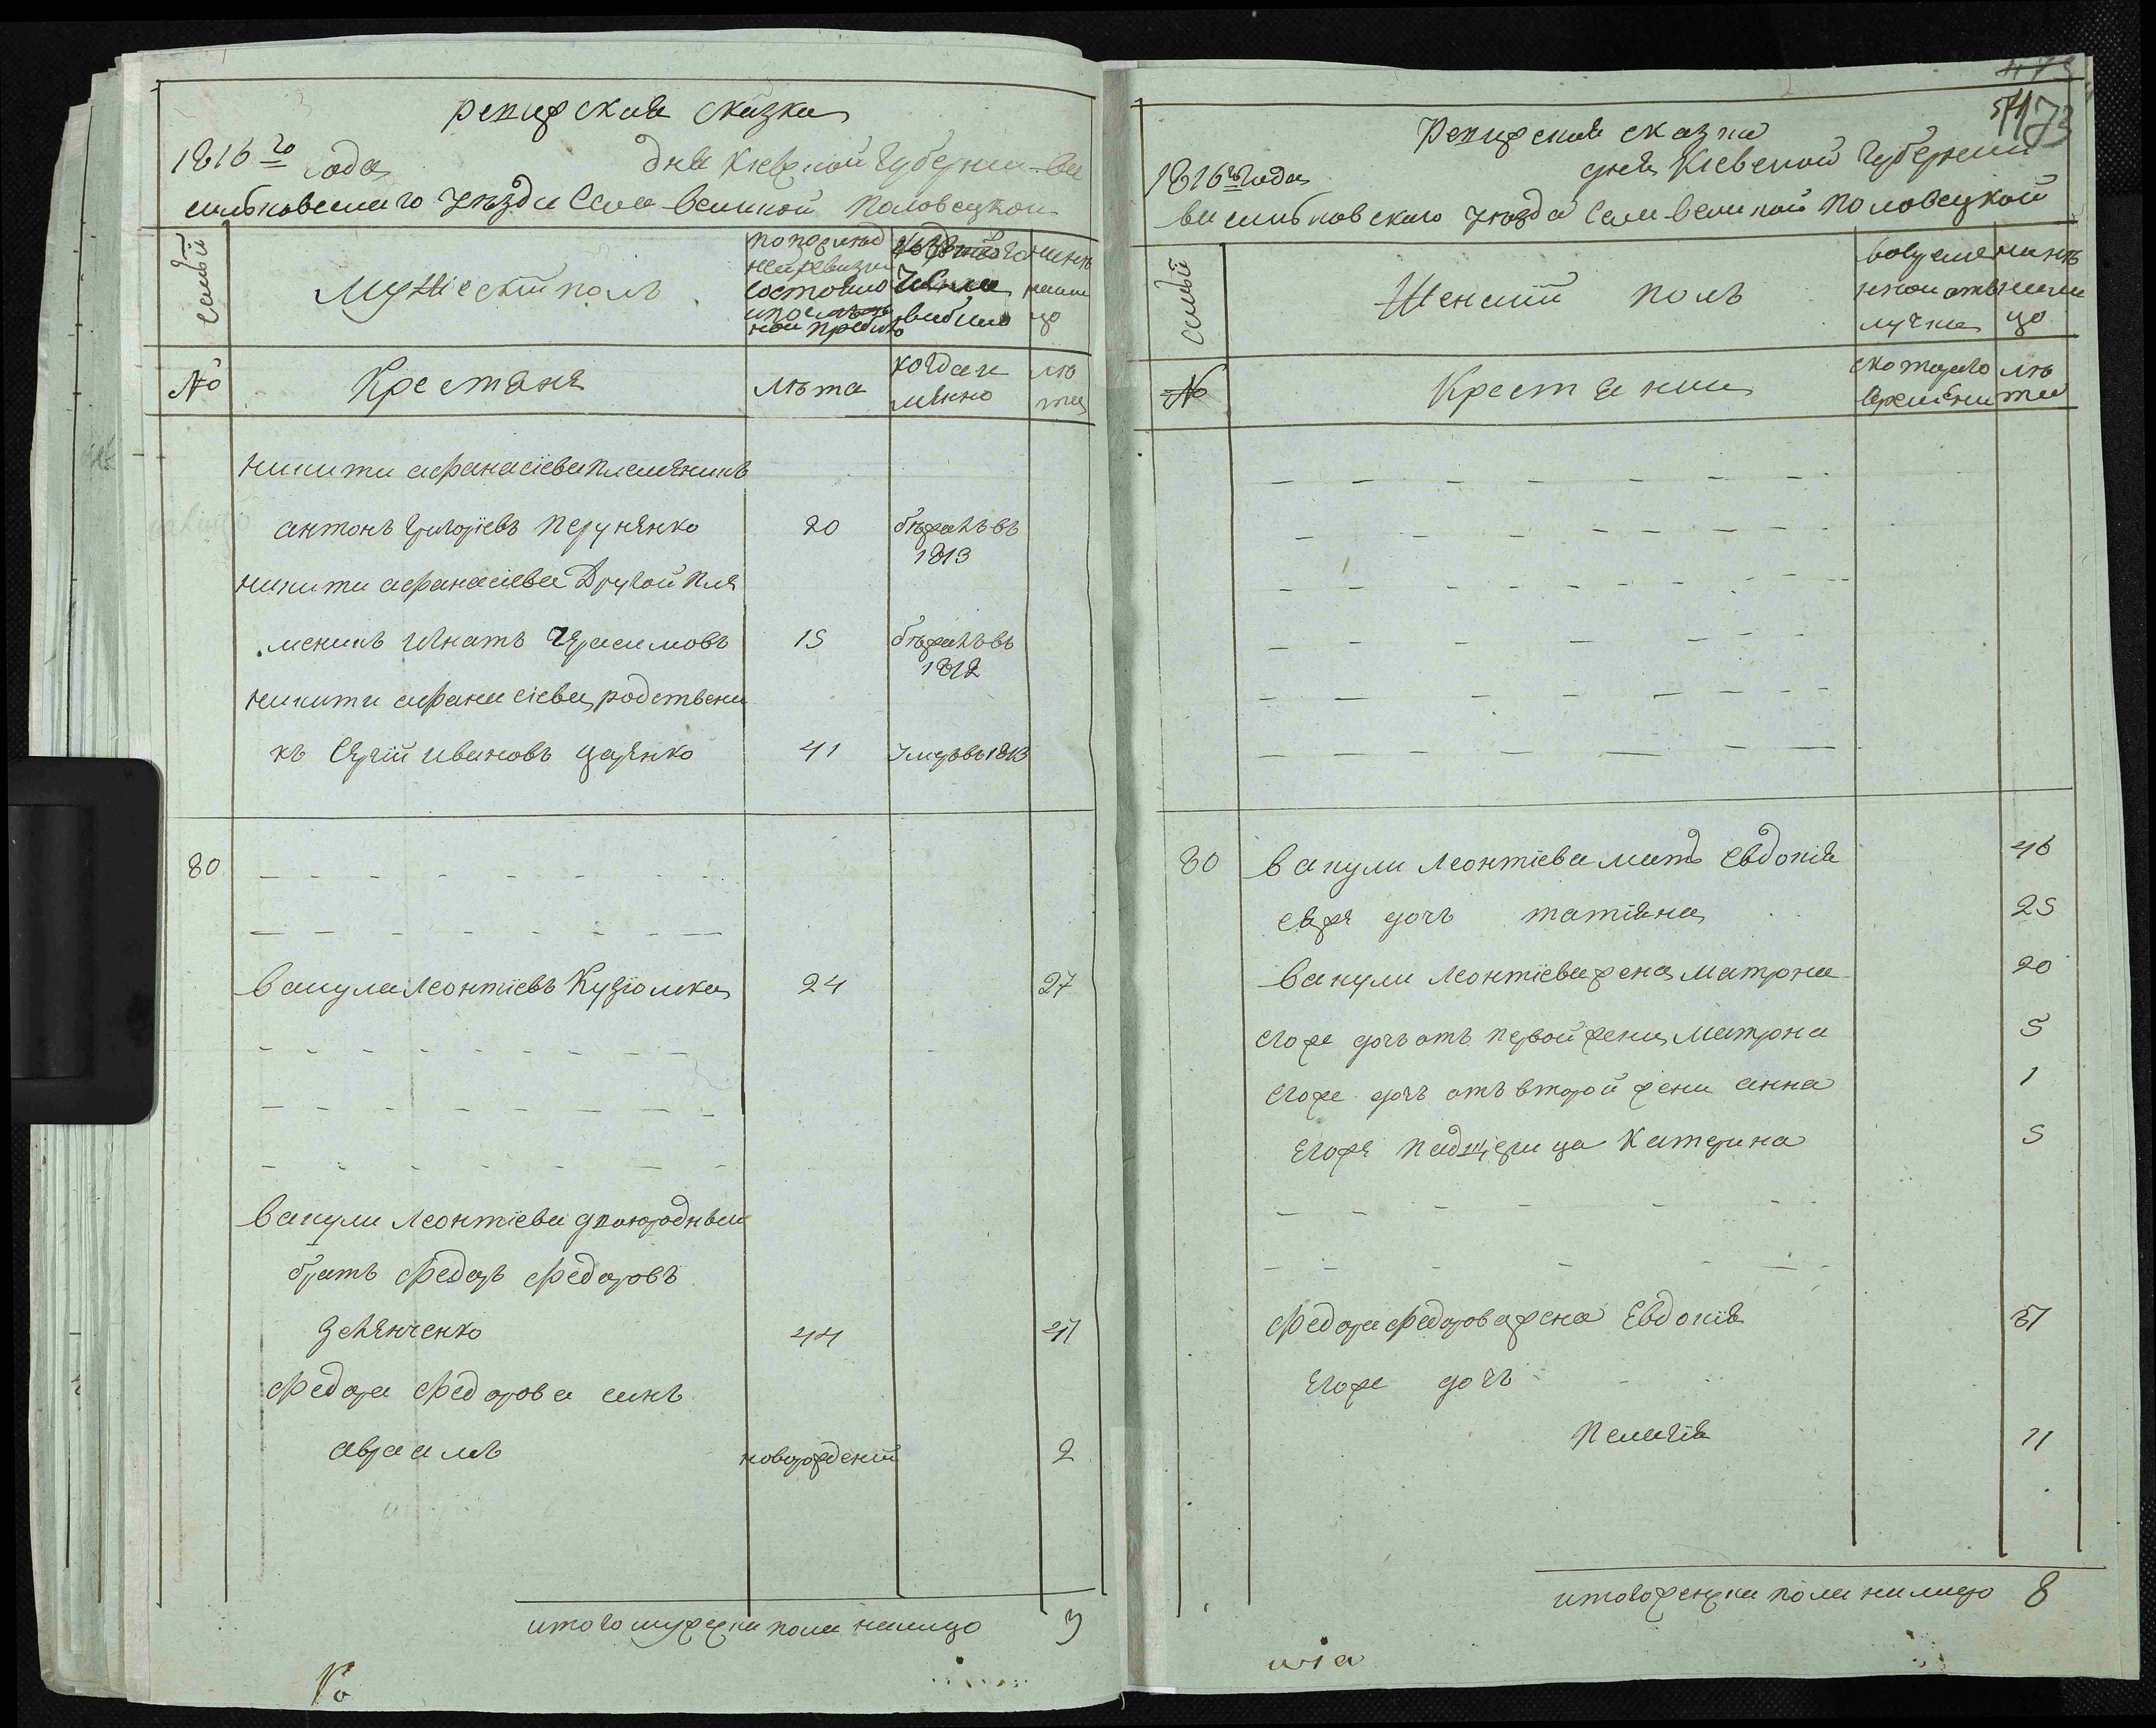 ревижская сказка
1816го года дня Киевской губернии ва
силковского уезда села великой половецкой
семьи
Мужеский полъ
по последней ревизии состояло и после оной прибыло
выбыло
ныне налицо
№
Крестяня
лѣта
когда и мянно
лѣ та
никити афанасіева племяникъ
антонъ григоріевъ перунянко 20 бѣжалъ въ
1813
никити афанасіева другой пля
меникъ игнатъ Герасимовъ 15 бѣжалъ въ
1812
никити афанасіева родствени
къ Сергій ивановъ царянко 41 умеръ въ 1813
80
вакула леонтіевъ Кузюмка 24 27
вакули леонтіева двоюродный
братъ федоръ федоровъ
44 47
федора федорова синъ
авраамъ новорожденій 2
итого мужеска пола налицо 3
Ревижская сказка
1816го года дня Киевской губернии
василковского уезда села великой половецкой
173
семьи
Женскій полъ
во временной отлучке
ныне налицо
№
Крестянки
с которого времени
лѣта
80 вакули леонтіева мать Евдокія 46
ея же дочъ татіяна 25
вакули леонтіева жена матрона 20
его же дочъ отъ первой жени матрона 5
его же дочъ отъ второй жени анна 1
Его же падщерица Катерина 5
федора федорова жена Евдокія 37
Его же дочъ
пелагія 11
итого женска пола налицо 8